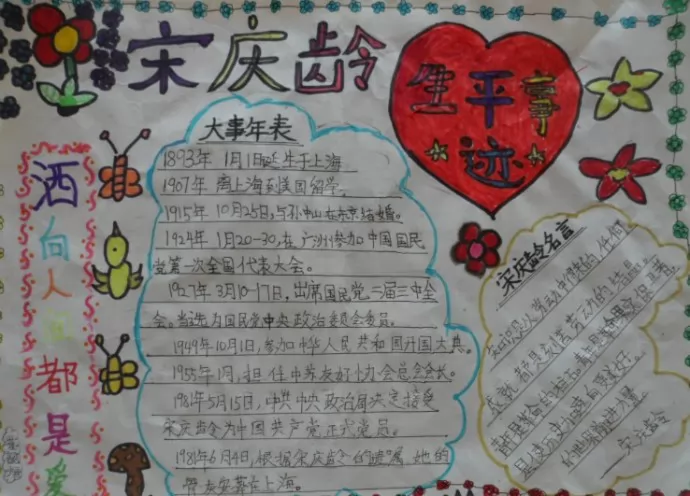 宋庆龄
生平事迹
洒向人 都是爱
大事年表
1893年 1月1日诞生于上海
1907年 离上海到美国留学。
1915年 10月25日,与孙中山在东京结婚。
1924年 1月20-30,在广州参加中国国民
党第一次全国代表大会。
1927年 3月10-17日,出席国民党二届三中全
会。当选为国民党中央政治委员会委员。
1949年10月1日,参加中华人民共和国开国大典。
1955年1月,担任中苏友好协会总会会长。
1981年5月15日,中共中央政治局决定接受
宋庆龄为中国共产党正式党员。
1981年6月4日,根据宋庆龄的遗嘱,她的
安葬在上海。
宋庆龄名言
知识是从劳动中得来的
成就都是刻苦劳动的结晶。
——宋庆龄